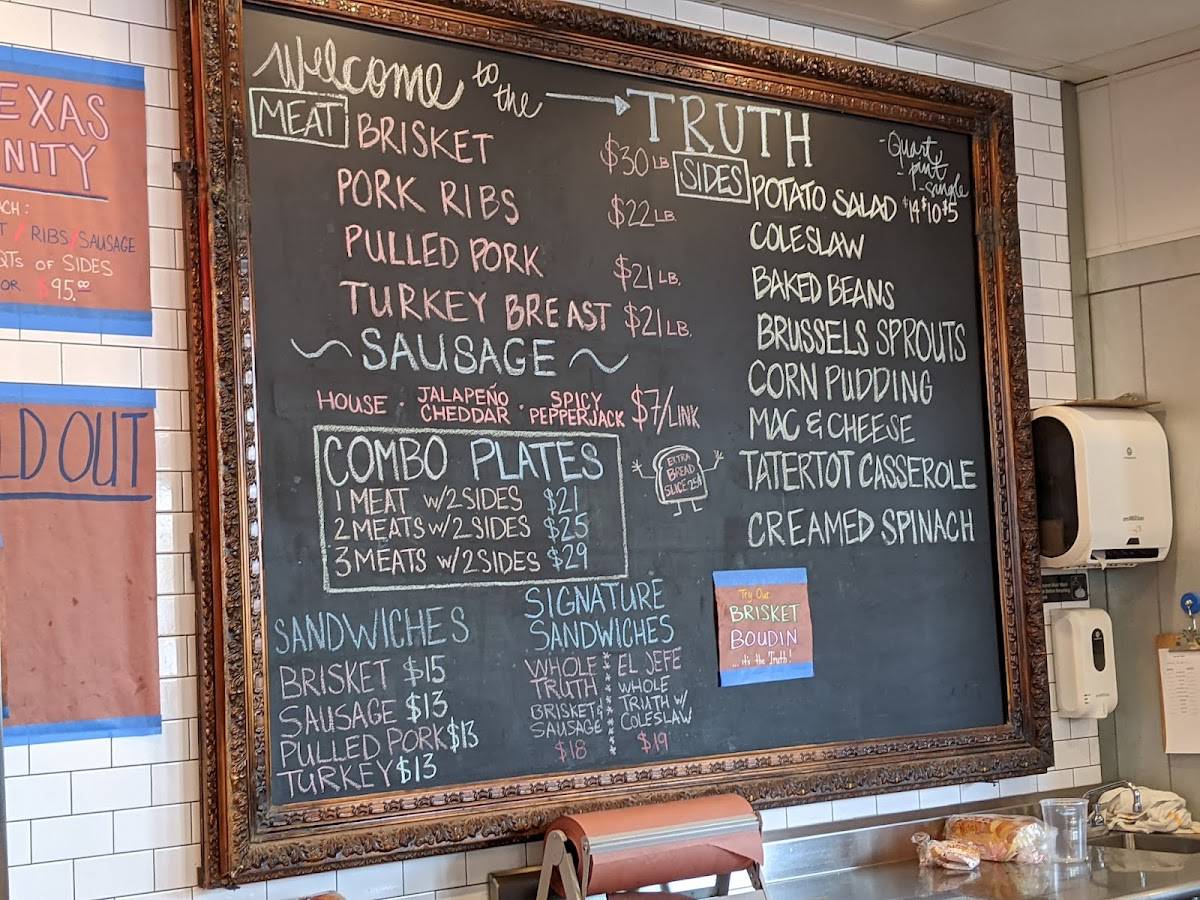 EXAS
NITY
ACH:
T / RIBS / SAUSAGE
QTS OF SIDES
OR $95.00
LD OUT
Welcome to the → TRUTH
MEAT
BRISKET $30 LB
PORK RIBS $22 LB.
PULLED PORK $21 LB.
TURKEY BREAST $21 LB.
~ SAUSAGE ~
HOUSE · JALAPEÑO CHEDDAR · SPICY PEPPERJACK $7/LINK
COMBO PLATES
1 MEAT W/2 SIDES $21
2 MEATS W/2 SIDES $25
3 MEATS W/2 SIDES $29
EXTRA
BREAD
SLICE 25¢
SANDWICHES
BRISKET $15
SAUSAGE $13
PULLED PORK $13
TURKEY $13
SIGNATURE
SANDWICHES
WHOLE
TRUTH
BRISKET &
SAUSAGE
$18
EL JEFE
WHOLE
TRUTH W/
COLESLAW
$19
SIDES
- Quart
- pint
- single
POTATO SALAD $14 $10 $5
COLESLAW
BAKED BEANS
BRUSSELS SPROUTS
CORN PUDDING
MAC & CHEESE
TATERTOT CASSEROLE
CREAMED SPINACH
Try Our
BRISKET
BOUDIN
... it's the Truth!